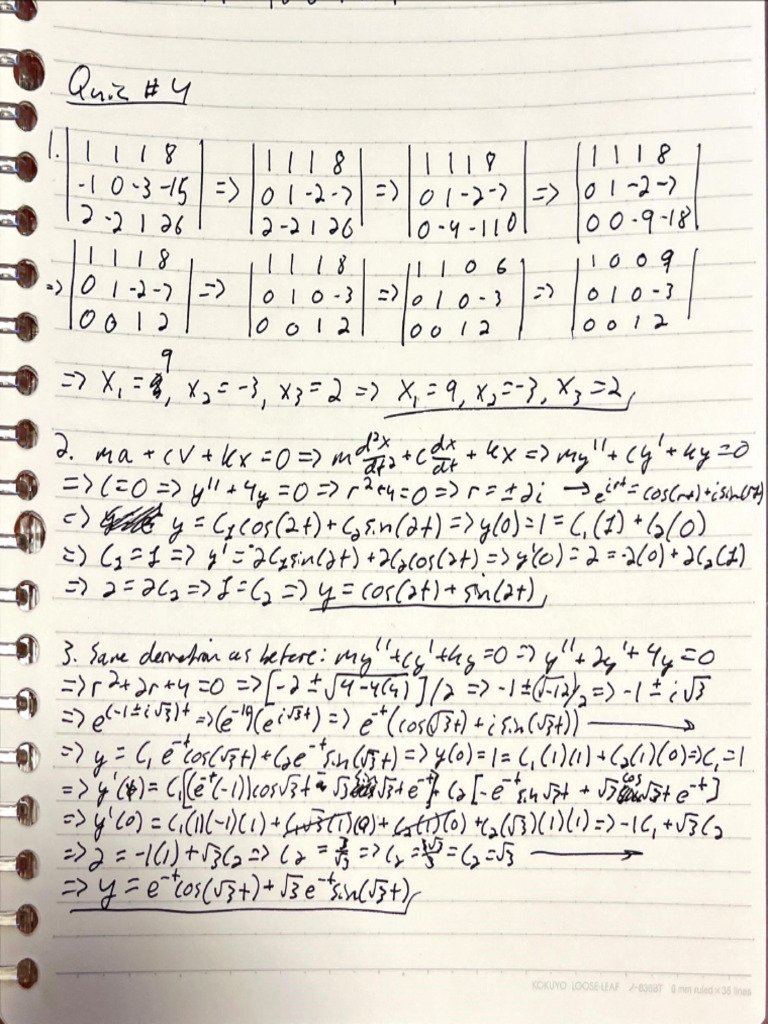 Quiz #4
1. | 1 1 1 8 | => | 1 1 1 8 | => | 1 1 1 8 | => | 1 1 1 8 |
| -1 0 -3 -15 | | 0 1 -2 -7 | | 0 1 -2 -7 | | 0 1 -2 -7 |
| 2 -2 1 26 | | 2 -2 1 26 | | 0 -4 -1 10 | | 0 0 -9 -18 |
=> | 1 1 1 8 | => | 1 1 1 8 | => | 1 1 0 6 | => | 1 0 0 9 |
| 0 1 -2 -7 | | 0 1 0 -3 | | 0 1 0 -3 | | 0 1 0 -3 |
| 0 0 1 2 | | 0 0 1 2 | | 0 0 1 2 | | 0 0 1 2 |
=> x₁ = 9, x₂ = -3, x₃ = 2 => x₁ = 9, x₂ = -3, x₃ = 2
2. ma + cv + kx = 0 => m d²x/dt² + c dx/dt + kx => my'' + cy' + ky = 0
=> c = 0 => y'' + 4y = 0 => r² + 4 = 0 => r = ±2i → e^(irt) = cos(rt) + i sin(rt)
=> y = C₁cos(2t) + C₂sin(2t) => y(0) = 1 = C₁(1) + C₂(0)
=> C₁ = 1 => y' = -2C₁sin(2t) + 2C₂cos(2t) => y'(0) = 2 = -2(0) + 2C₂(1)
=> 2 = 2C₂ => 1 = C₂ => y = cos(2t) + sin(2t)
3. Same derivation as before: my'' + cy' + ky = 0 => y'' + 2y' + 4y = 0
=> r² + 2r + 4 = 0 => [-2 ± √(4-4(4))]/2 => -1 ± (√-12)/2 => -1 ± i√3
=> e^((-1±i√3)t) => (e^(-1t))(e^(i√3t)) => e^(-t)(cos(√3t) + i sin(√3t)) →
=> y = C₁e^(-t)cos(√3t) + C₂e^(-t)sin(√3t) => y(0) = 1 = C₁(1)(1) + C₂(1)(0) => C₁ = 1
=> y'(t) = C₁[(e^(-t)(-1))cos√3t - √3 sin√3t e^(-t)] + C₂[-e^(-t)sin√3t + √3 cos√3t e^(-t)]
=> y'(0) = C₁(1)(-1)(1) + C₁√3(1)(0) + C₂(1)(0) + C₂(√3)(1)(1) => -1C₁ + √3C₂
=> 2 = -1(1) + √3C₂ => C₂ = 3/√3 => C₂ = 3√3/3 = C₂ = √3 →
=> y = e^(-t)cos(√3t) + √3e^(-t)sin(√3t)
KOKUYO LOOSE-LEAF ノ-836BT 6 mm ruled×36 lines